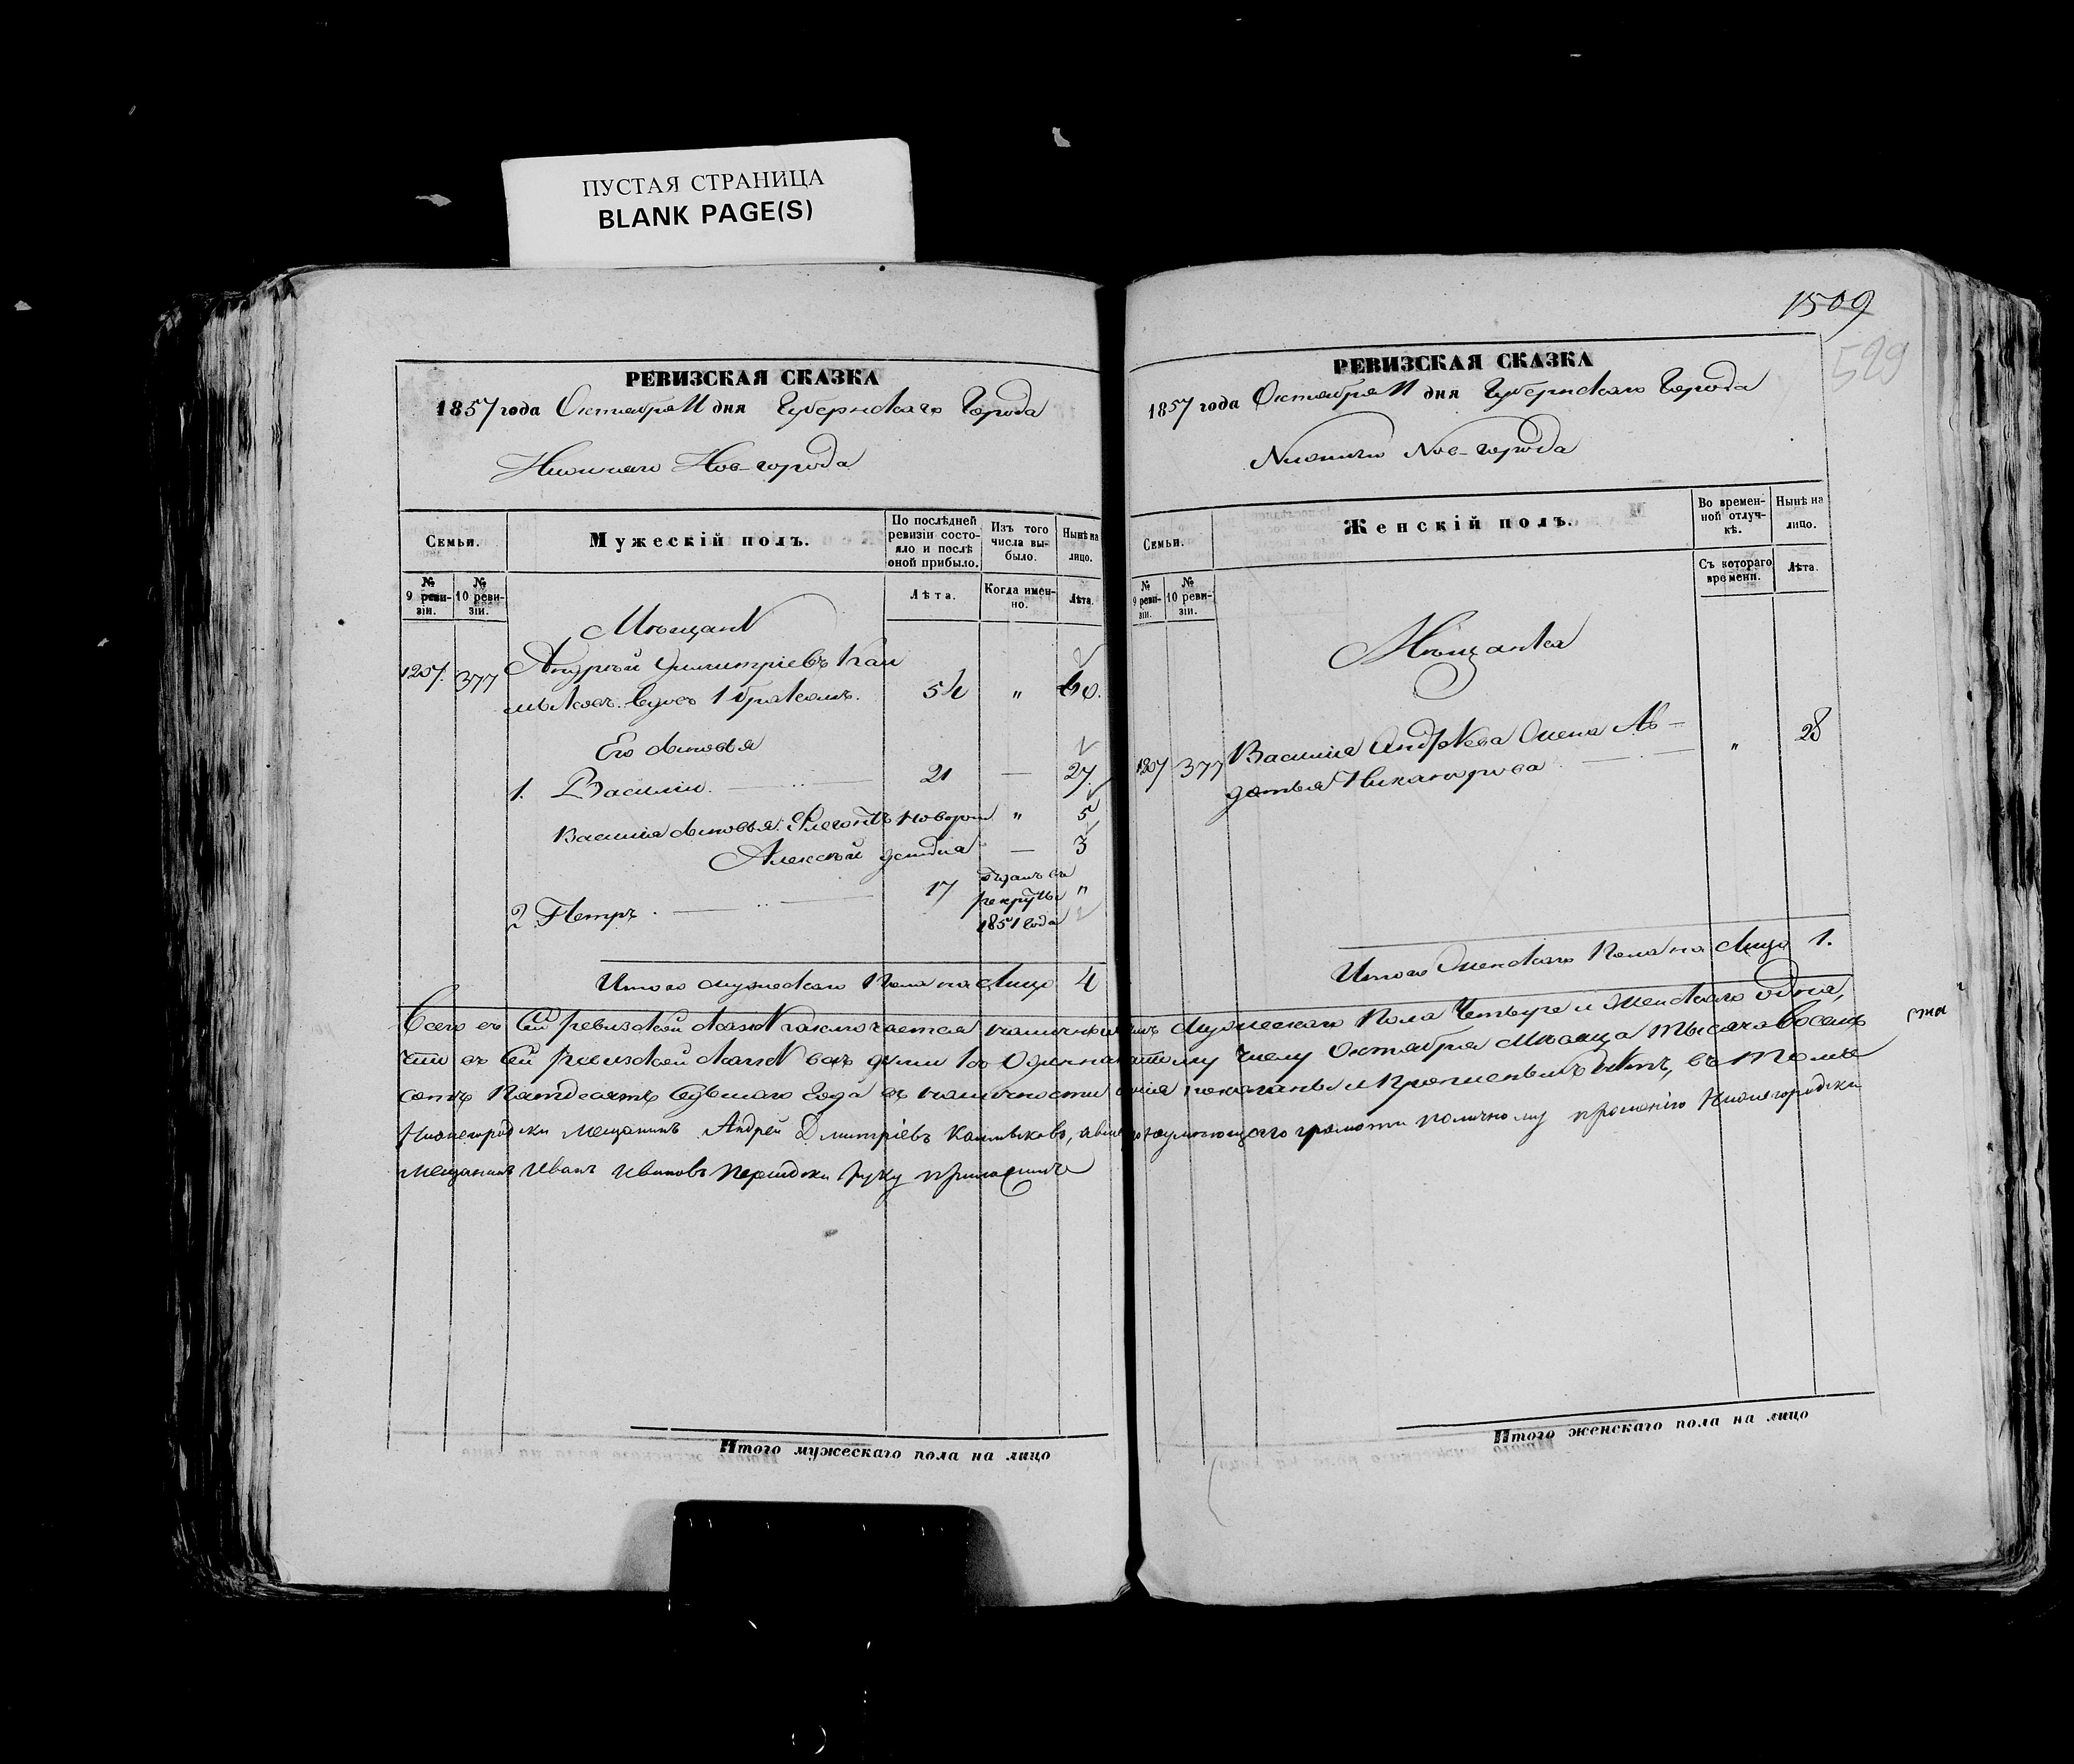 ПУСТАЯ СТРАНИЦА
BLANK PAGE(S)
РЕВИЗСКАЯ СКАЗКА
1857 года Октября 11 дня Губернскаго Города
Нижняго Нов-города
Семьи.
Мужескій полъ.
По послѣдней ревизіи состояло и послѣ оной прибыло.
Изъ того числа выбыло.
Нынѣ на лицо.
№ 9 ревизіи.
№ 10 ревизіи.
Лѣта.
Когда именно.
Лѣта.
Мѣщанѣ
1207. 377 Андрѣй Димитріевъ Кал
мыковъ. 54 " 60.
Его сыновья
1. Василій. 21 — 27.
Василія сыновья. новорож " 5
Алексѣй — 3
2 Петръ. 17 отданъ въ рекруты 1851 года "
Итого мужескаго Пола на Лицо 4
1509
529
РЕВИЗСКАЯ СКАЗКА
1857 года Октября 11 дня Губернскаго Города
Нижняго Нов-города
Семьи.
Женскій полъ.
Во временной отлучкѣ.
Нынѣ на лицо.
№ 9 ревизіи.
№ 10 ревизіи.
Съ котораго времени.
Лѣта.
Мѣщанка
1207 377 Василія Андрѣева жена Ав-
дотья Никанорова " 28
Итого Женскаго Пола на Лицо 1.
Всего въ сей ревизской сказкѣ заключается наличныхъ Мужескаго Пола Четыре и Женскаго одна,
въ Сей ревизской сказкѣ всѣ души по Одиннатцатому числу Октября Мѣсяца Тысяча Восемь
сотъ Пятдесятъ Седьмаго Года въ наличности показаны и прописныхъ нѣтъ, въ Томъ
Нижегородски Мещанинъ Андрей Дмитріевъ Калмыковъ, а вместо неумеющего грамоти поличному прошению Нижегородски
Мещанинъ Иванъ Ивановъ руку приложилъ